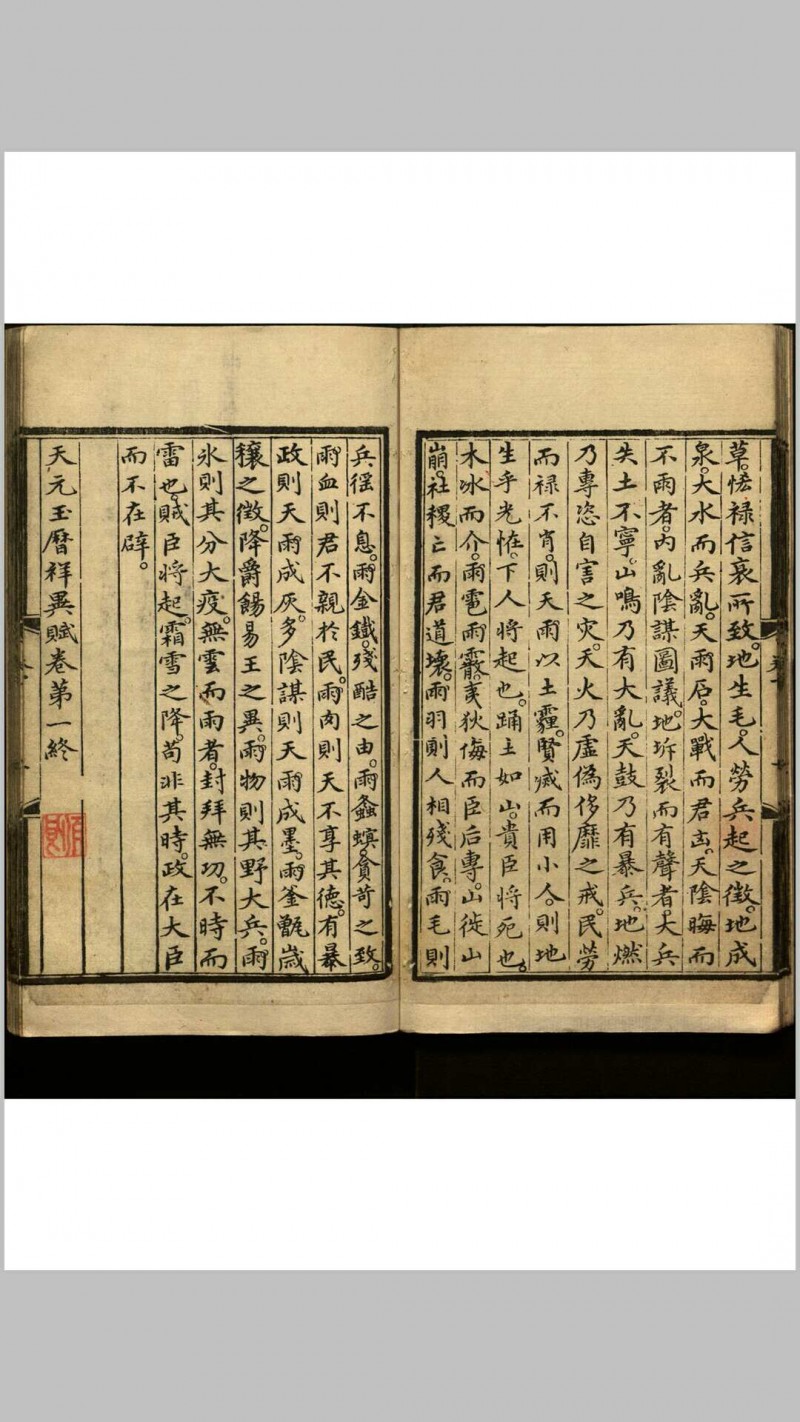 草。恡禄信衰所致。地生毛。人勞兵起之徵。地成
泉。大水而兵亂。天雨石。大戰而君凶。天陰晦而
不雨者。內亂陰謀圖議。地坼裂而有聲者。大兵
失土不寧。山鳴乃有大亂。天鼓乃有暴兵。地燃
乃專恣自害之灾。天火乃虛偽侈靡之戒。民勞
而禄不宵。則天雨以土霾。賢臧而用小人。則地
生乎光恠。下人將起也。踊土如山。貴臣將死也。
木冰而介。雨雹雨霰。夷狄侮而臣后專。山徙山
崩。社稷亡而君道壞。雨羽則人相殘食。雨毛則
兵徭不息。雨金鐵。殘酷之由。雨螽螟。貪苛之致。
雨血則君不親於民。雨肉則天不享其德。有暴
政則天雨成灰。多陰謀則天雨成墨。雨釜甑歲
穰之徵。降爵餳易王之異。雨物則其野大兵。雨
氷則其分大疫。無雲而雨者。封拜無功。不時而
雷也。賊臣將起。霜雪之降。苟非其時。政在大臣
而不在辟。
天元玉曆祥異賦卷第一終